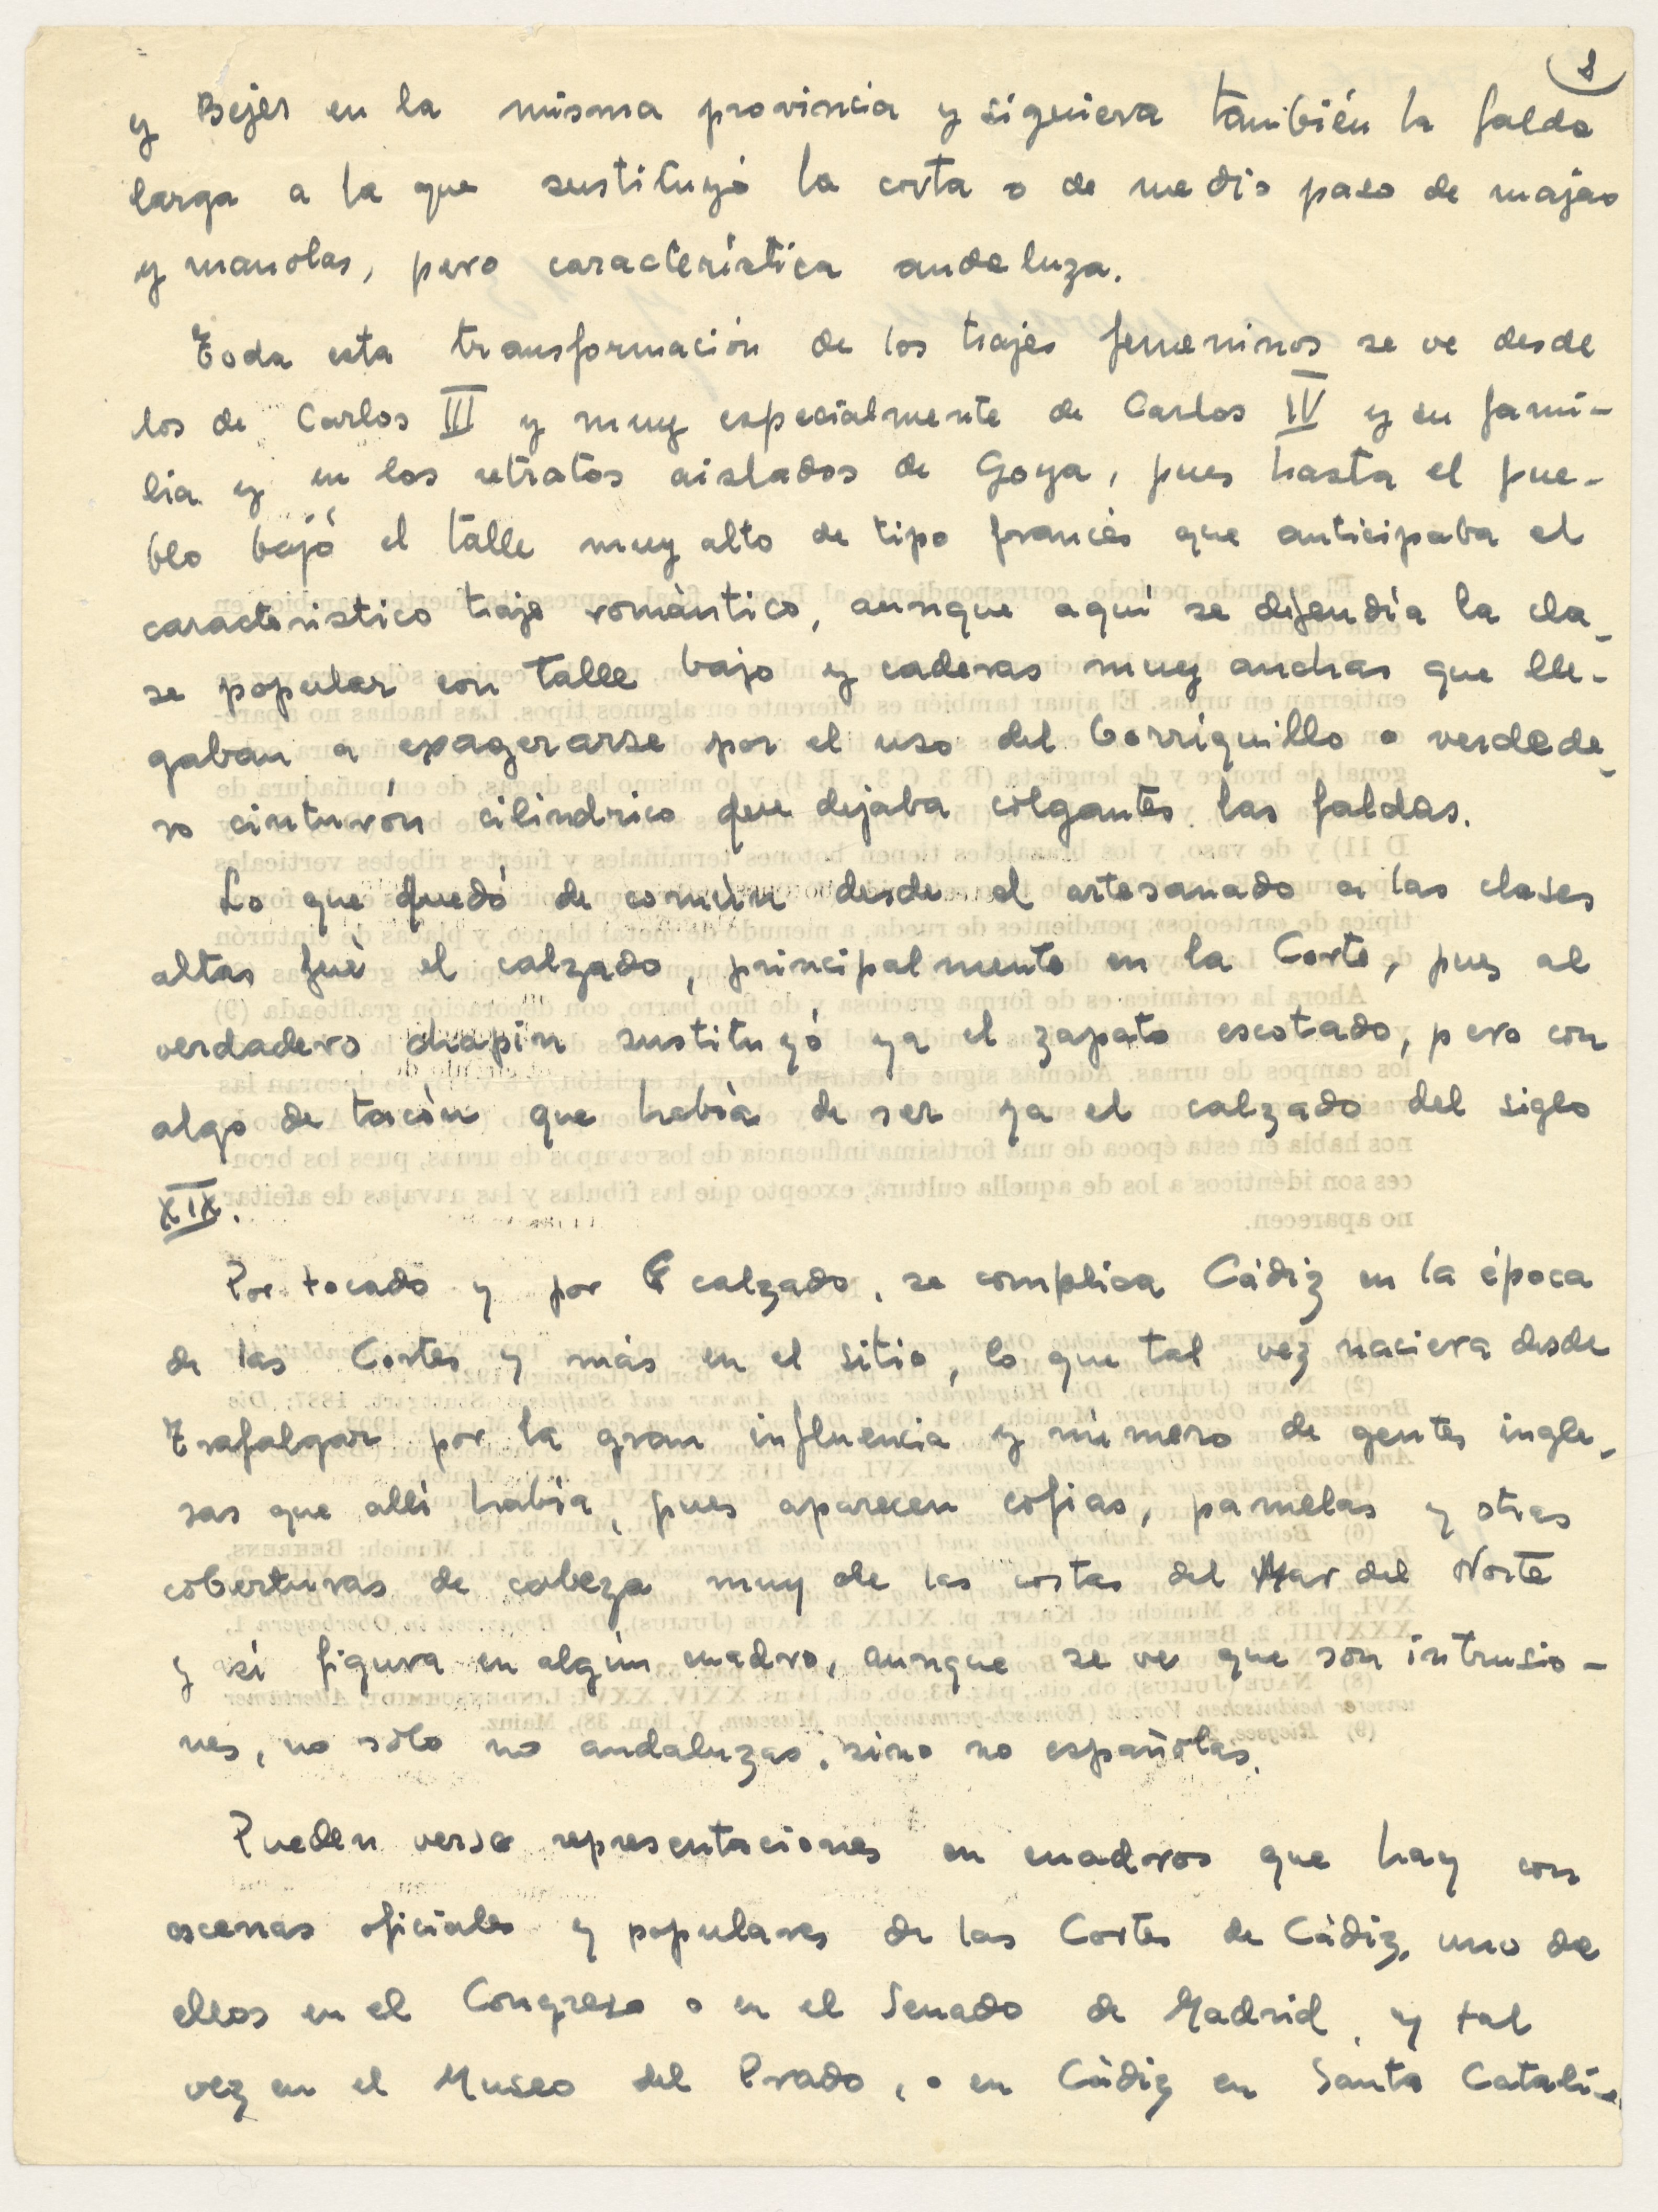 8
y Bejer en la misma provincia y siguiera también la falda
larga a la que sustituyó la corta o de medio paso de majas
y manolas, pero característica andaluza.
Toda esta transformación de los trajes femeninos se ve desde
los de Carlos III y muy especialmente de Carlos IV y en fami-
lia y en los retratos aislados de Goya, pues hasta el pue-
blo bajó el talle muy alto de tipo francés que anticipaba el
caracteristico traje romántico, aunque aquí se difendía la cla-
se popular con talle bajo y caderas muy anchas que lle-
gaban a exagerarse por el uso del borriquillo o verdade-
ro cinturón cilindrico que dejaba colgantes las faldas.
Lo que quedó de común desde el artesanado a las clases
altas fué el calzado, principalmente en la Corte, pues al
verdadero chapín sustituyó ya el zapato escotado, pero con
algo de tacón que había de ser ya el calzado del siglo
XIX.
Por tocado y por calzado, se complica Cádiz en la época
de las Cortes y más en el sitio, lo que tal vez naciera desde
Trafalgar por la gran influencia y número de gentes ingle-
sas que allí había, pues aparecen cofias, pamelas y otras
coberturas de cabeza muy de las costas del Mar del Norte
y si figura en algún cuadro, aunque se ve que son intrusio-
nes, no sólo no andaluzas, sino no españolas.
Pueden verse representaciones en cuadros que hay con
escenas oficiales y populares de las Cortes de Cádiz, uno de
ellos en el Congreso o en el Senado de Madrid, y tal
vez en el Museo del Prado, o en Cádiz en Santa Catali-